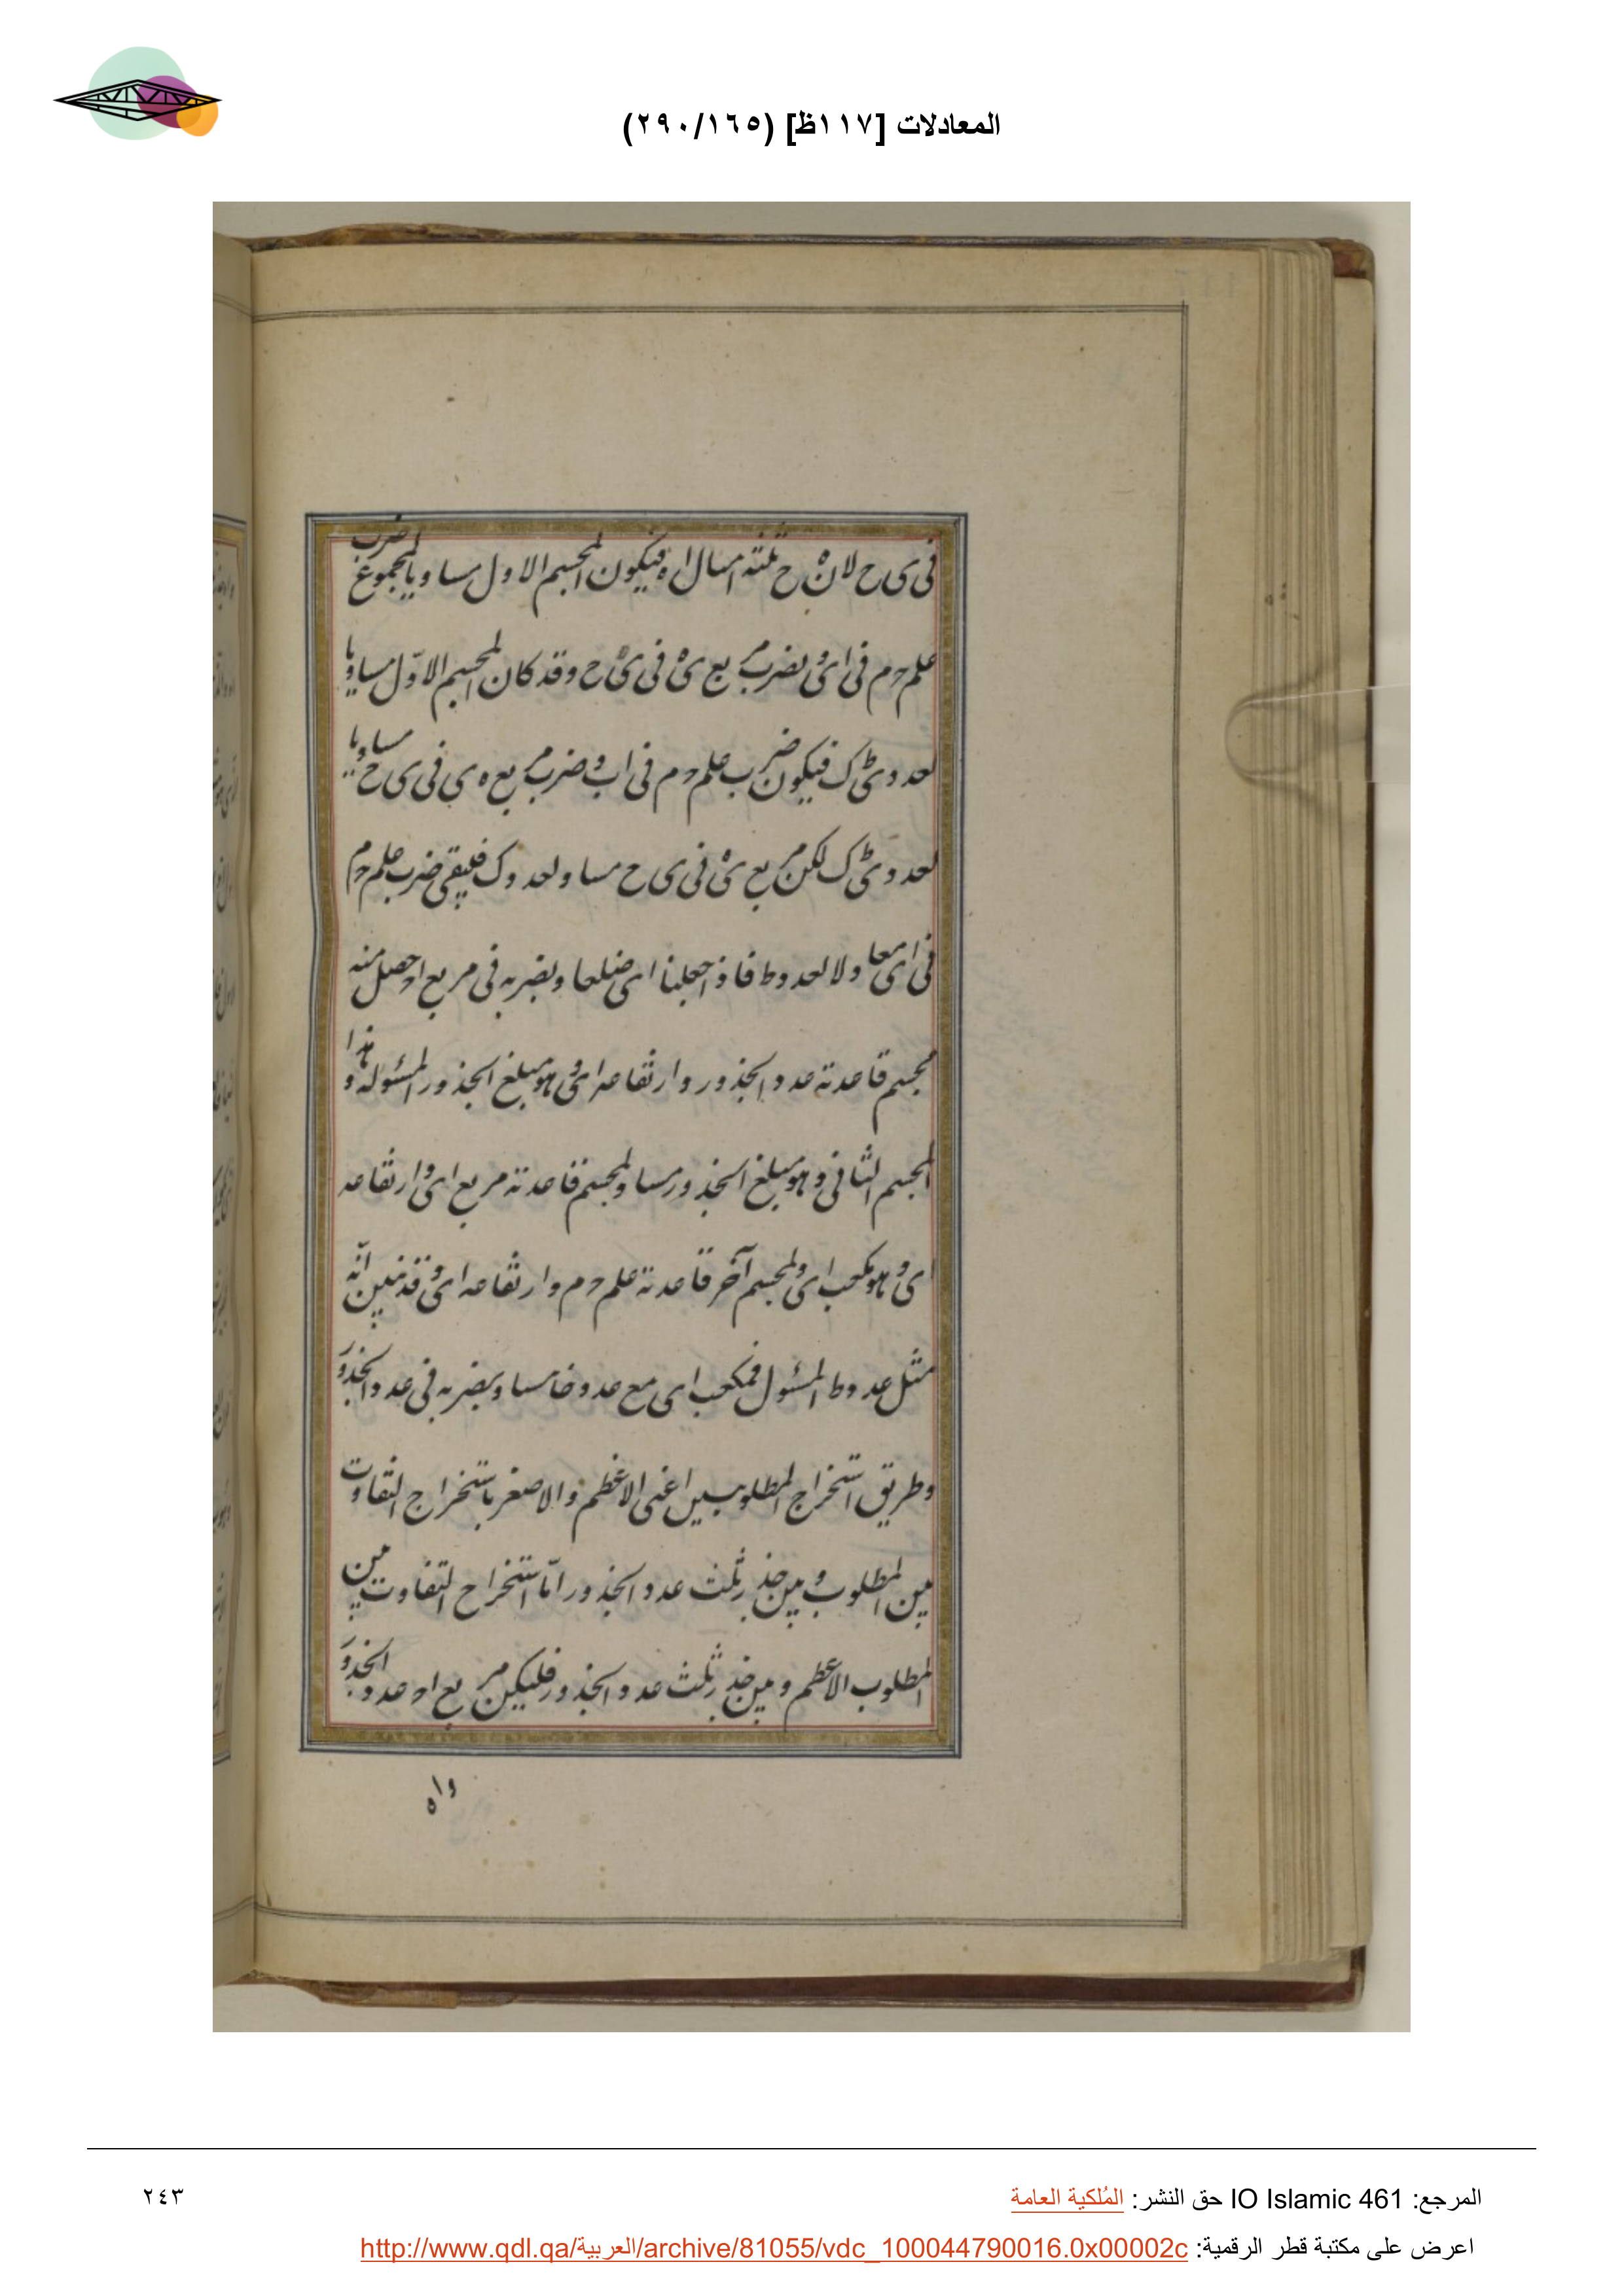 المعادلات [١١٧ظ] (٢٩٠/١٦٥)
فى ى ح لان ه ح ثلثة امثال ا ه فيكون المجسم الاول مساويا لمجموع ضرب
علم حم فى اى و بضرب مربع ى ه فى ى ح وقد كان المجسم الاوّل مساويا
لعدد ى ك فيكون ضرب علم حم فى اى و ضرب مربع ه ى فى ى ح مساويا
لعدد ى ك لكن مربع ى ه فى ى ح مساو لعدد ك فليبقى ضرب علم حم
فى اى معا ولا لعدد ط فاذا جعلنا اى ضلعا وبضربه فى مربع اح حصل منه
مجسم قاعدته عدد الجذور وارتفاعه اى وهو مبلغ الجذور المسئولة وهذا
المجسم الثانى وهو مبلغ الجذور مساو لمجسم قاعدته مربع اى وارتفاعه
اى وهو مكعب اى ولمجسم آخر قاعدته علم حم وارتفاعه اى وقد تبين انّه
مثل عدد ط المسئول فمكعب اى مع عدد خا مساو بضربه فى عدد الجذور
وطريق استخراج المطلوبين اعنى الاعظم والاصغر باستخراج التفاوت
بين المطلوب وبين جذر ثلث عدد الجذور امّا استخراج التفاوت بين
المطلوب الاعظم وبين جذر ثلث عدد الجذور فليكن مربع اح عدد الجذور
و ا ه
المرجع: IO Islamic 461 حق النشر: المُلكية العامة
٢٤٣
اعرض على مكتبة قطر الرقمية: http://www.qdl.qa/العربية/archive/81055/vdc_100044790016.0x00002c